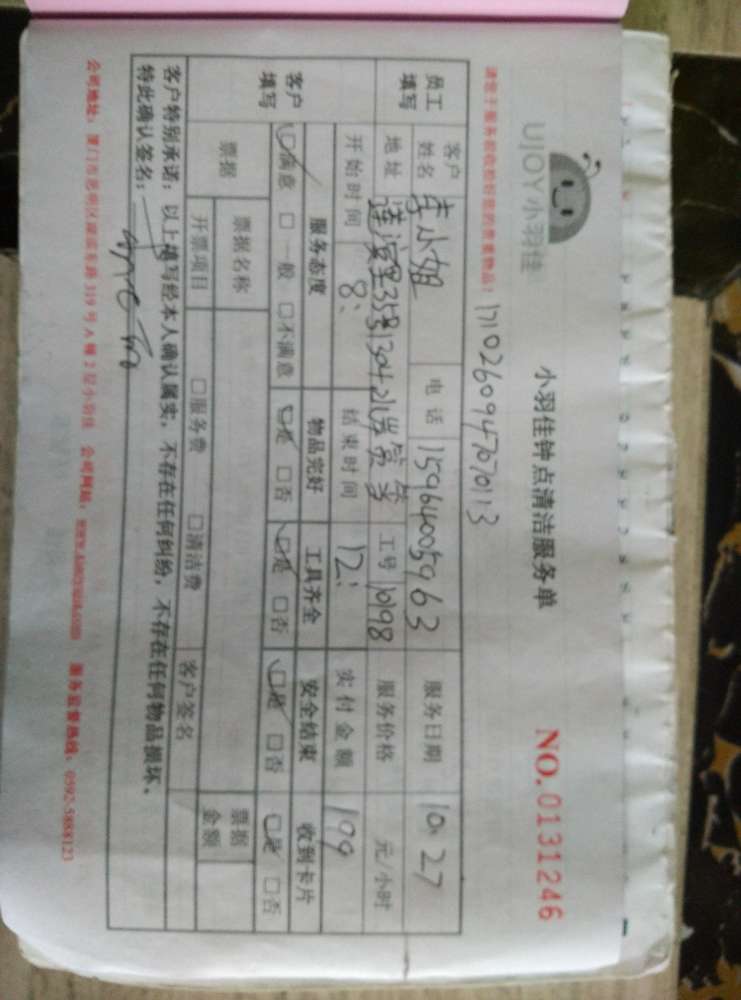 UJOY 小羽佳
小羽佳钟点清洁服务单
NO.0131246
请您于服务前收拾好您的贵重物品!
1710260947070113
员工填写
客户姓名 李小姐 电话 15964005963 服务日期 10.27
地址 莲 里35号1304 工号 10198 服务价格 元/小时
开始时间 8: 结束时间 12: 实付金额 199
客户填写
服务态度 物品完好 工具齐全 安全结束 收到卡片
☑满意 □一般 □不满意 ☑是 □否 ☑是 □否 ☑是 □否 ☑是 □否
票据 票据名称 票据金额
开票项目 □服务费 □清洁费 客户签名
客户特别承诺:以上填写经本人确认属实,不存在任何纠纷,不存在任何物品损坏。
特此确认签名:
公司地址:厦门市思明区 319号A幢2层小羽佳 公司网站: 服务监督热线:0592-5888123